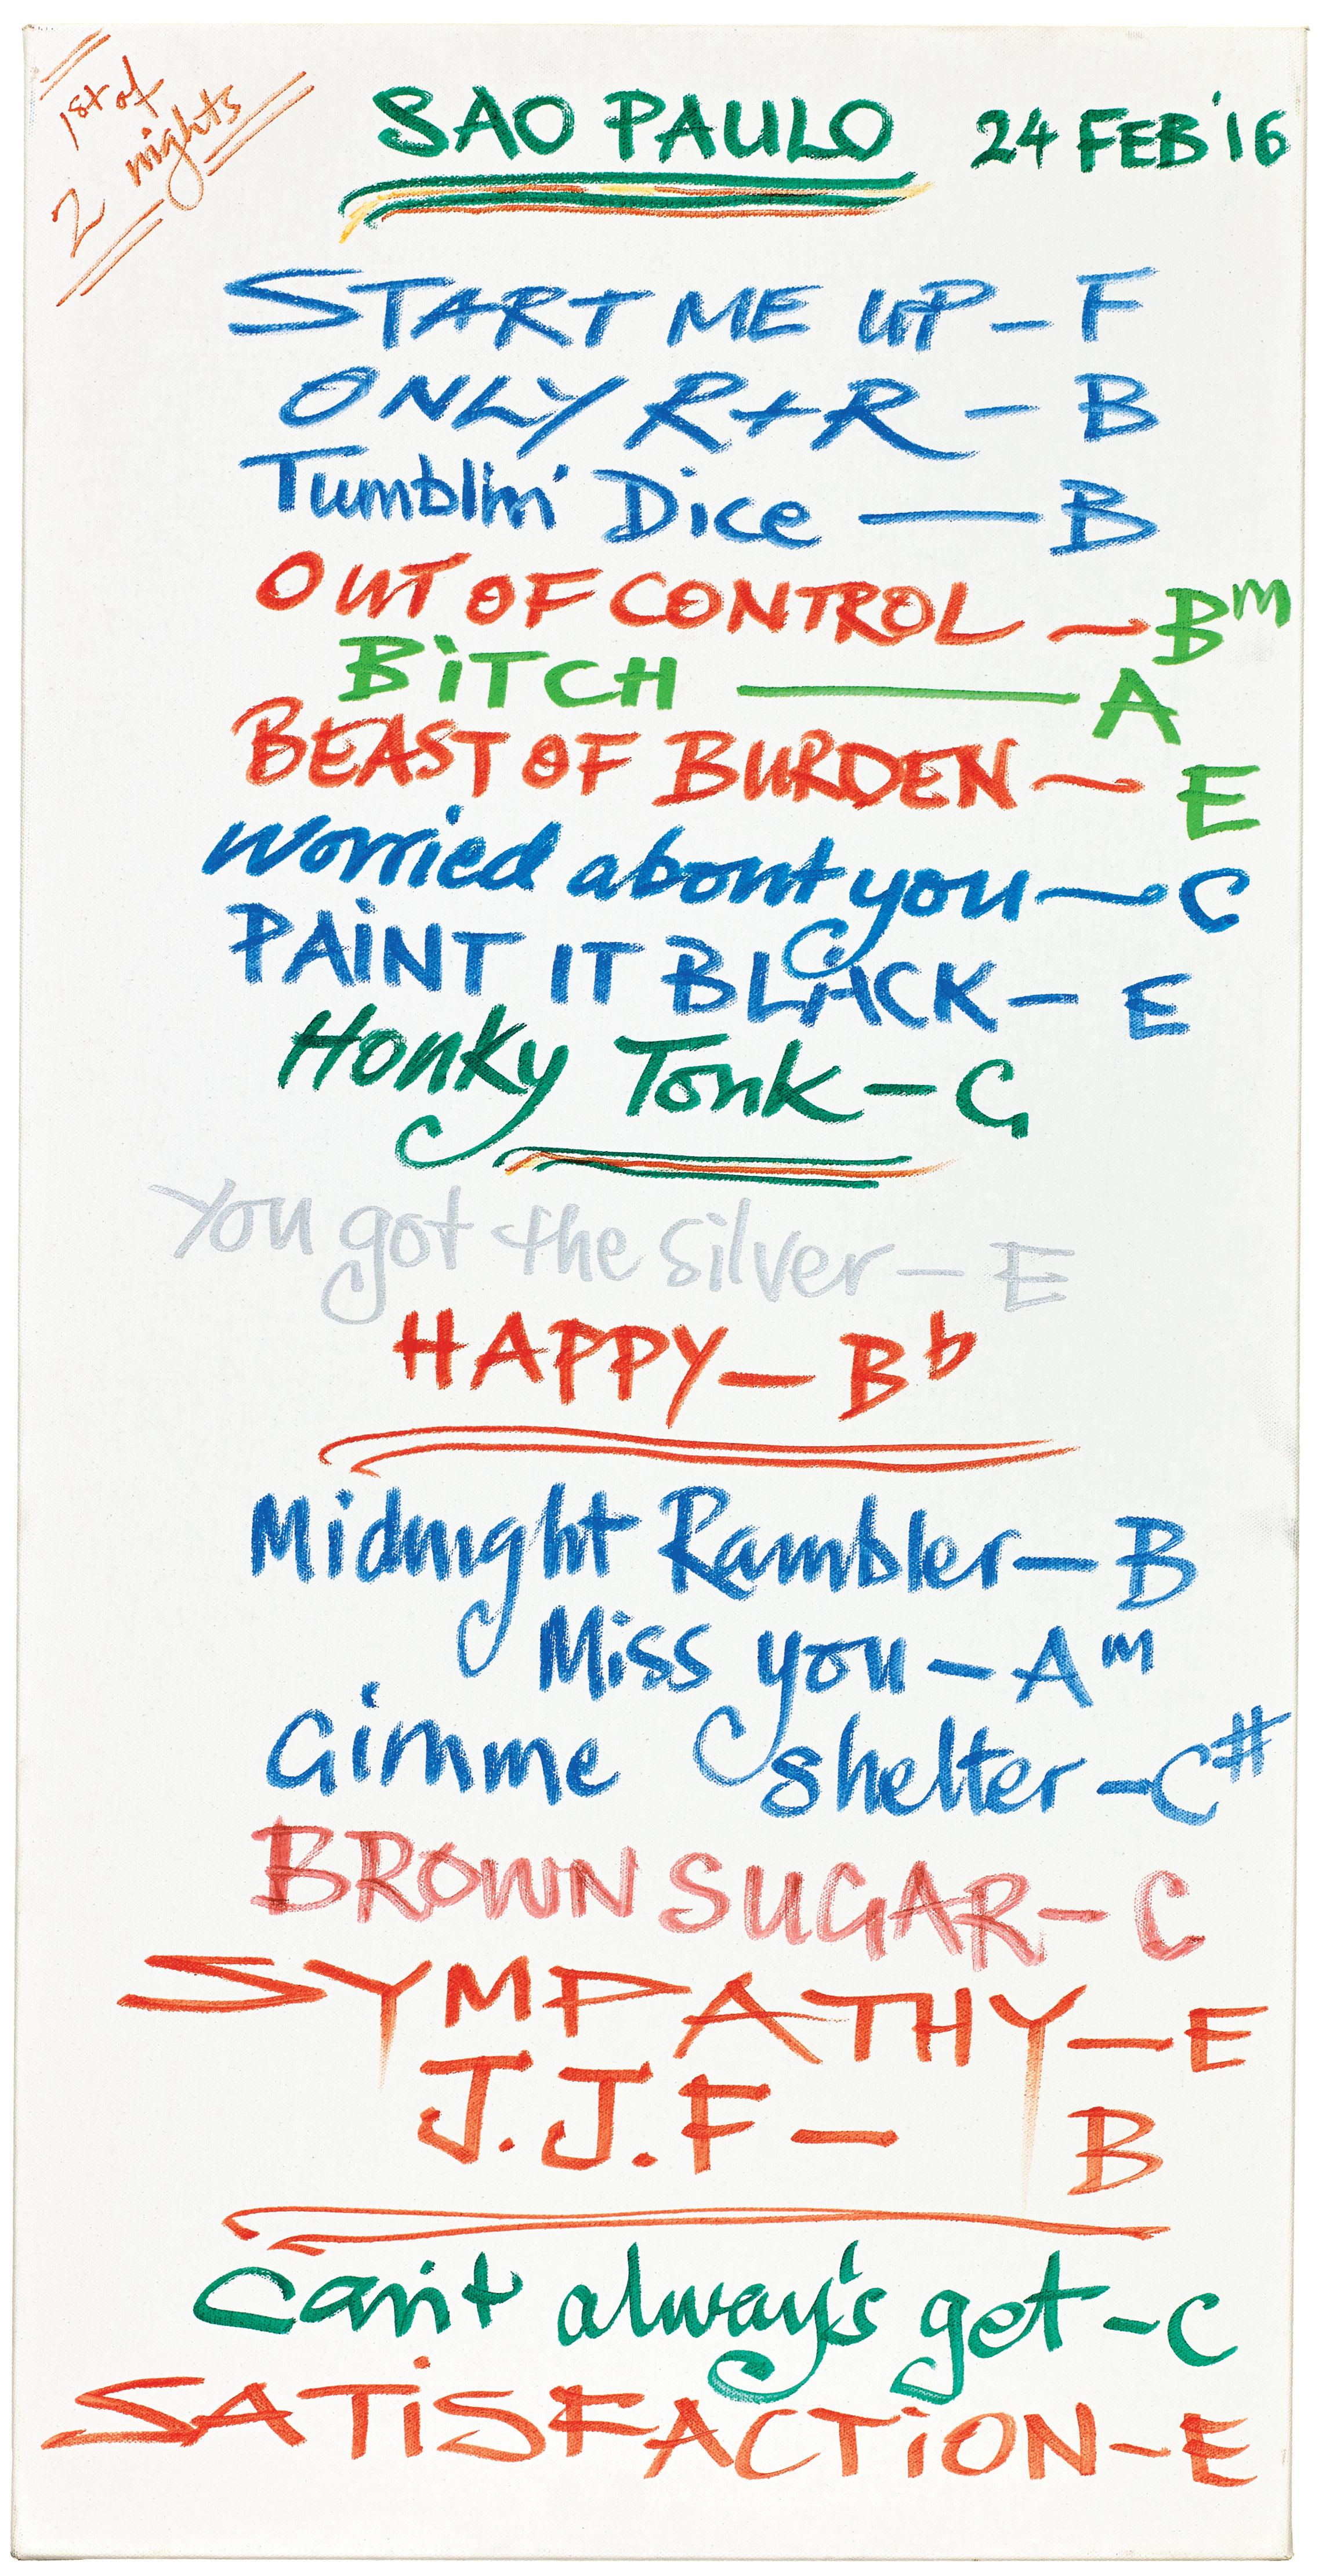 1st of
2 nights
SAO PAULO 24 FEB '16
START ME UP - F
ONLY R+R - B
Tumblin' Dice — B
OUT OF CONTROL ~ Bm
BiTCH — A
BEAST OF BURDEN ~ E
Worried about you ~ C
PAiNT IT BLACK - E
Honky Tonk - G
You got the silver - E
HAPPY — Bb
Midnight Rambler — B
Miss you - Am
Gimme shelter - C#
BROWN SUGAR - C
SYMPATHY — E
J.J.F — B
Can't always get - C
SATiSFACTiON - E